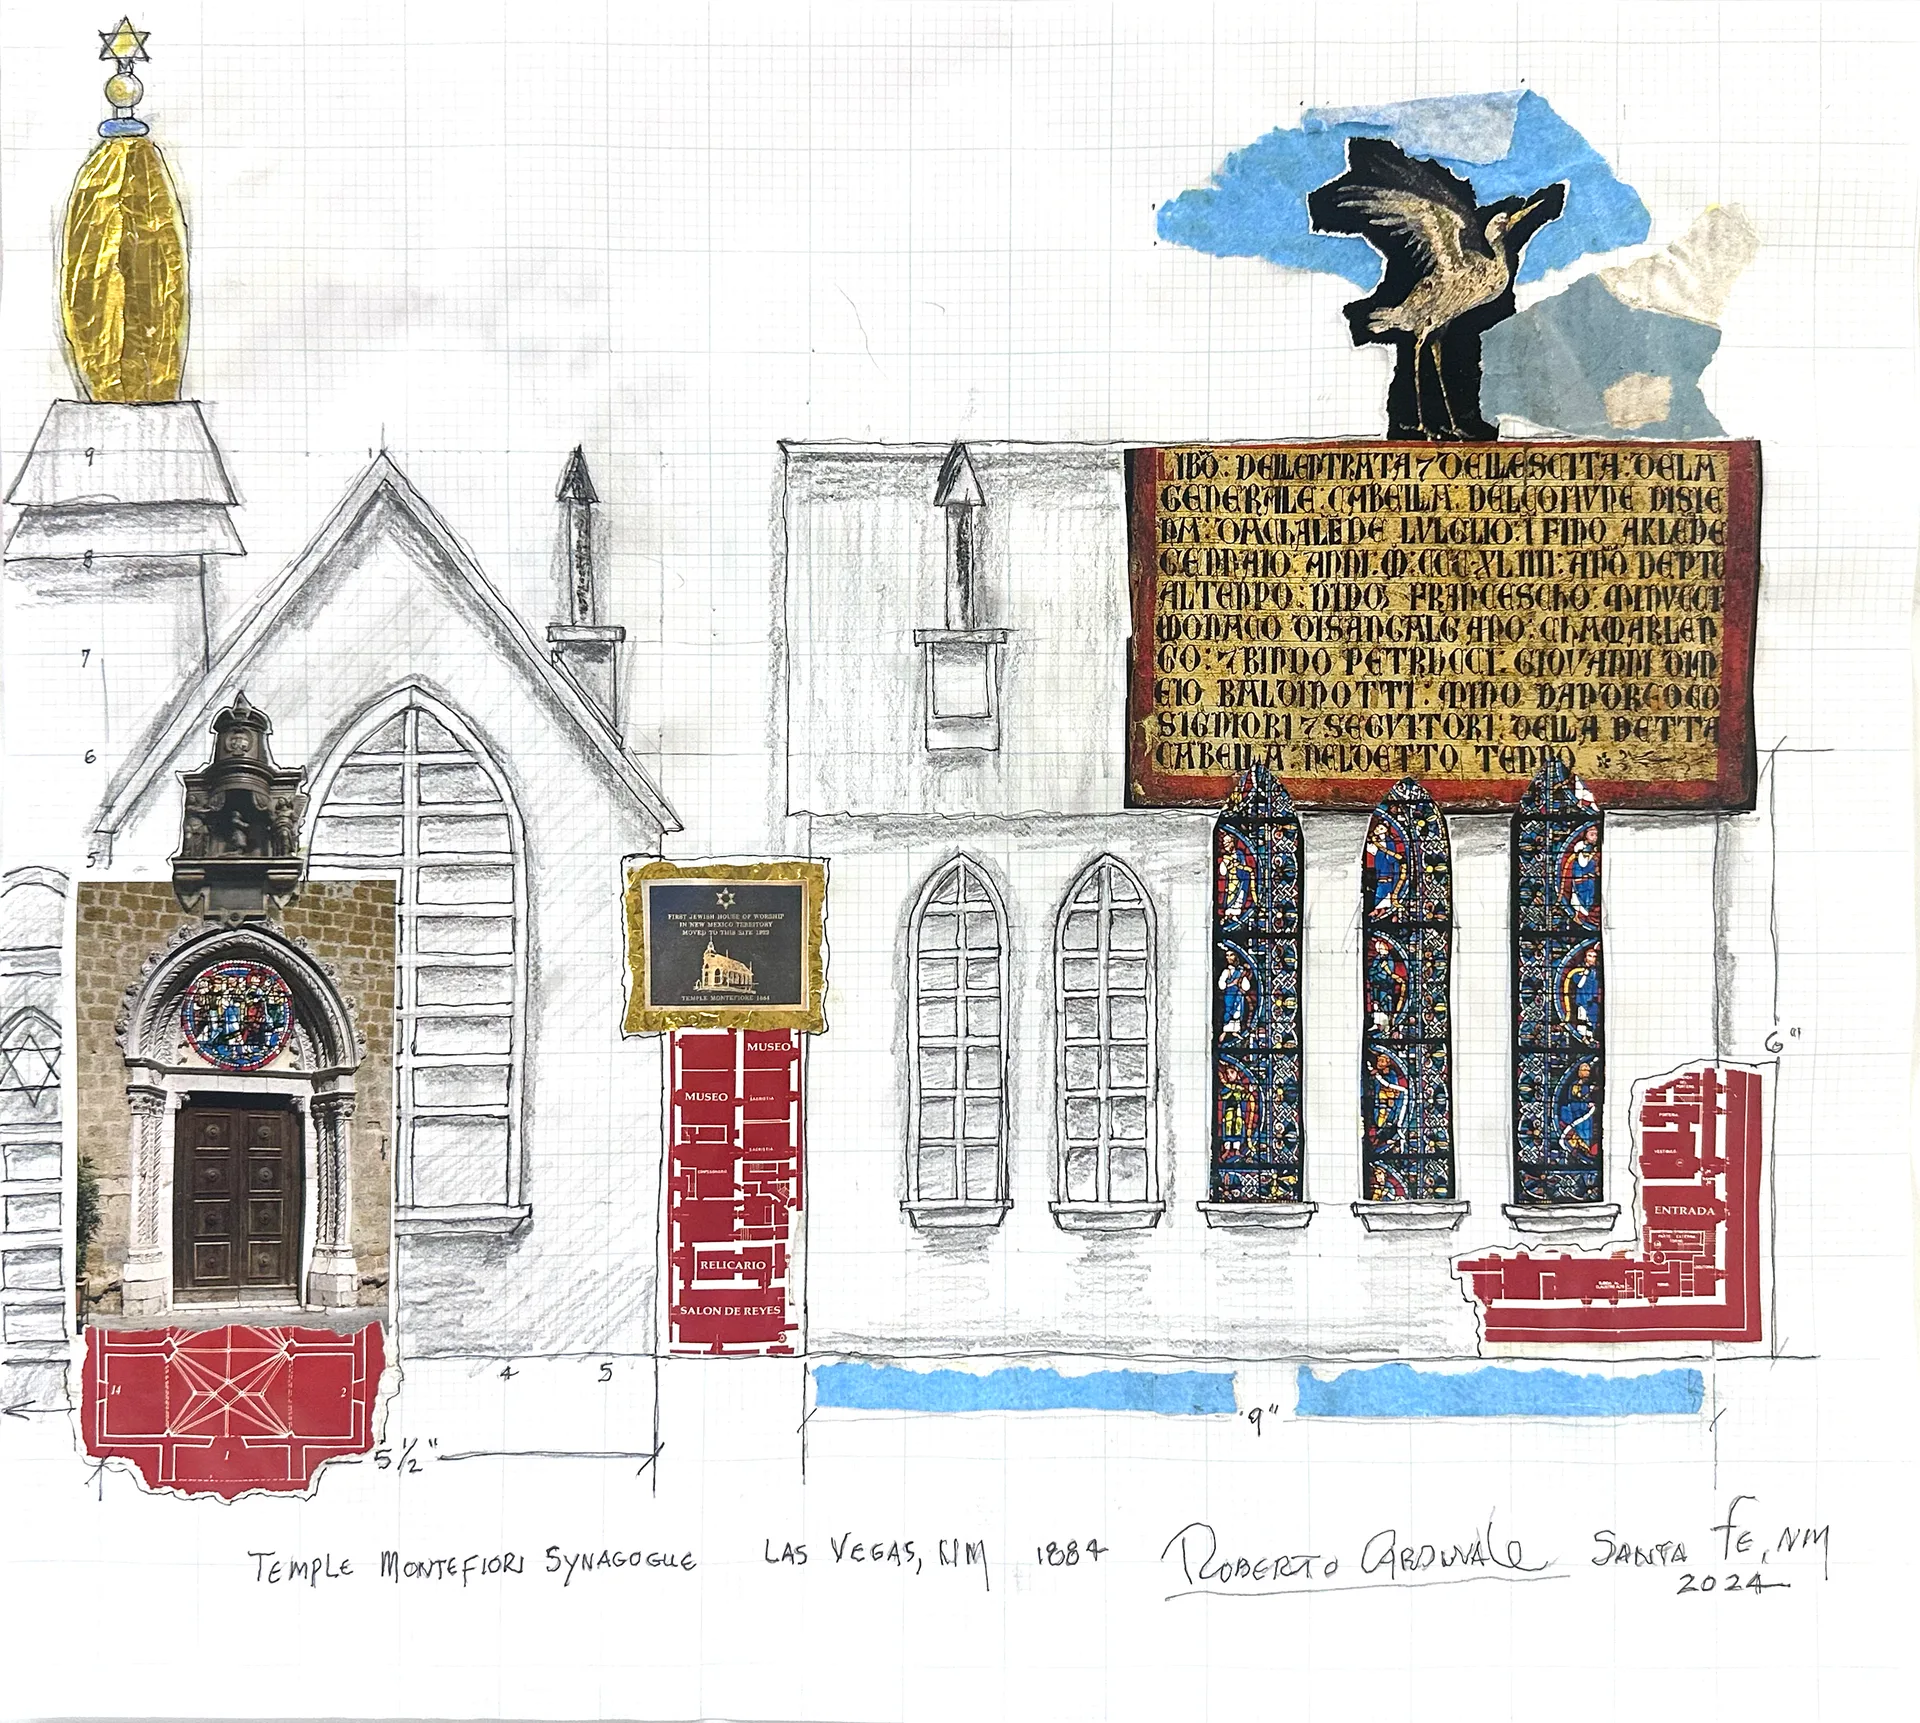 9
8
7
6
5
LIBO: DELLENTRATA 7 DELLESCITA: DELA
GENERALE: CABELLA: DELCOMUNE DISIE
NA: DACHALEDE LULGLIO: I FINO AKLEDE
GENNAIO: ANNI: M: CCC XL IIII: APO DEPTE
ALTENPO: DIDO FRANCESCHO: MINUCCI
MONACO DISANGALGANO: CHAMARLEN
GO: 7 BINDO PETRUCCI: GIOVANNI DIM
EIO BALDINOTTI: MINO DANDREOCO
SIGNIORI 7 SEGUITORI: DELLA DETTA
CABELLA: NELDETTO TENPO
FIRST JEWISH HOUSE OF WORSHIP
IN NEW MEXICO TERRITORY
MOVED TO THIS SITE 1922
TEMPLE MONTEFIORE 1884
MUSEO
MUSEO
SACRISTIA
SACRISTIA
CONFESIONARIO
RELICARIO
SALON DE REYES
6"
PORTERIA
VESTIBULO
ENTRADA
14
2
1
4
5
5 1/2"
9"
TEMPLE MONTEFIORI SYNAGOGUE LAS VEGAS, NM 1884 ROBERTO CARDINALE SANTA FE, NM
2024